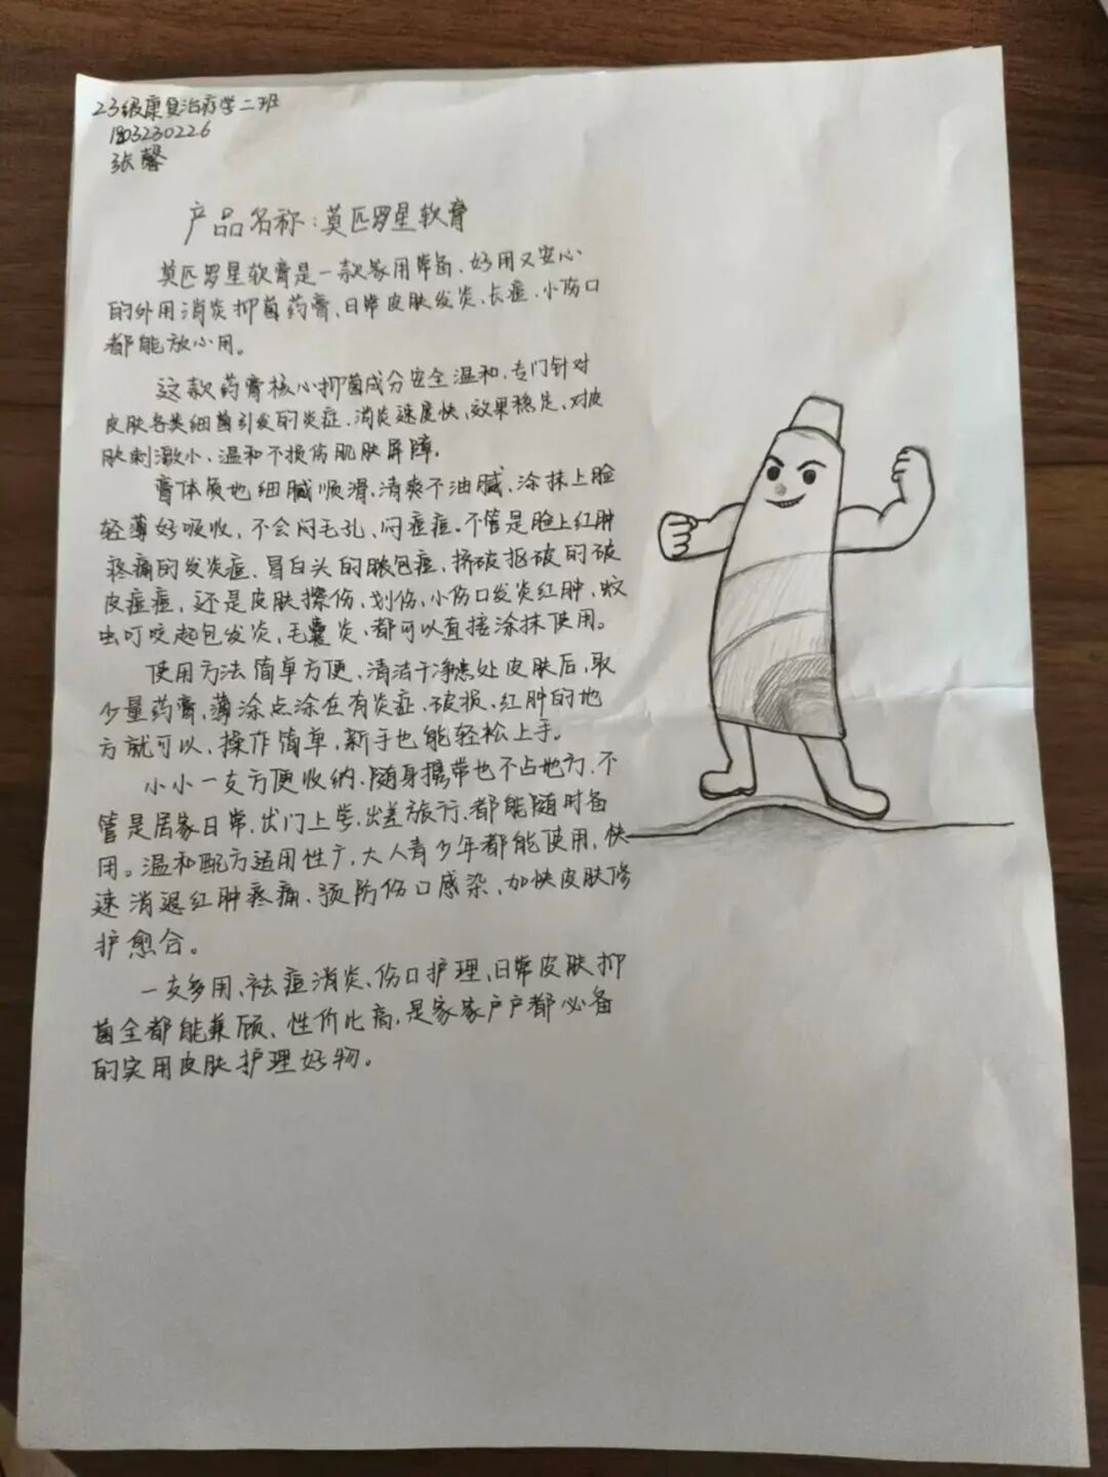 23级康复治疗学二班
1803230226
张馨
产品名称:莫匹罗星软膏
莫匹罗星软膏是一款家用常备、好用又安心
的外用消炎抑菌药膏、日常皮肤发炎、长痘、小伤口
都能放心用。
这款药膏核心抑菌成分安全温和、专门针对
皮肤各类细菌引发的炎症、消炎速度快、效果稳定、对皮
肤刺激小、温和不损伤肌肤屏障。
膏体质地细腻顺滑、清爽不油腻、涂抹上脸
轻薄好吸收,不会闷毛孔、闷痘痘。不管是脸上红肿
疼痛的发炎痘、冒白头的脓包痘、挤破抠破的破
皮痘痘,还是皮肤擦伤、划伤、小伤口发炎红肿、蚊
虫叮咬起包发炎,毛囊炎、都可以直接涂抹使用。
使用方法简单方便、清洁干净患处皮肤后,取
少量药膏,薄涂点涂在有炎症、破损、红肿的地
方就可以、操作简单,新手也能轻松上手。
小小一支方便收纳、随身携带也不占地方、不
管是居家日常、出门上学、出差旅行、都能随时备
用。温和配方适用性广,大人青少年都能使用,快
速消退红肿疼痛、预防伤口感染、加快皮肤修
护愈合。
一支多用、祛痘消炎、伤口护理、日常皮肤抑
菌全都能兼顾、性价比高,是家家户户都必备
的实用皮肤护理好物。